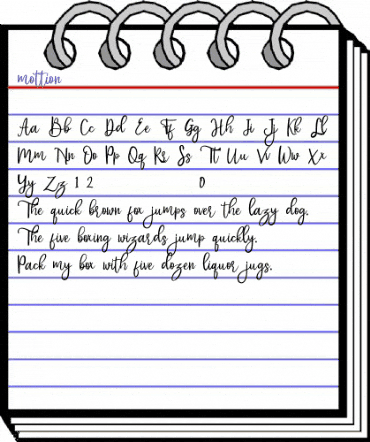 mottion
Aa Bb Cc Dd Ee Ff Gg Hh Ii Jj Kk Ll
Mm Nn Oo Pp Qq Rr Ss Tt Uu Vv Ww Xx
Yy Zz 1 2 0
The quick brown fox jumps over the lazy dog.
The five boxing wizards jump quickly.
Pack my box with five dozen liquor jugs.